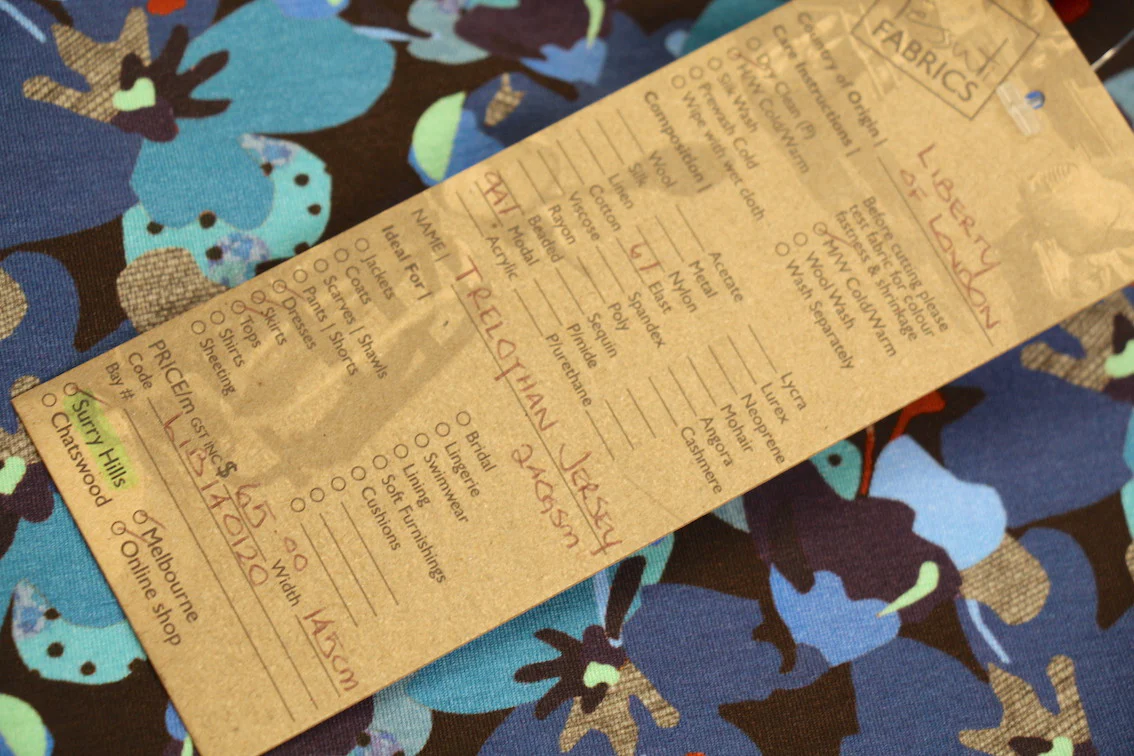 FABRICS
Country of Origin | LIBERTY
OF LONDON
Care Instructions |
Before cutting please
test fabric for colour
fastness & shrinkage
Dry Clean (P)
M/W Cold/Warm
Silk Wash
Prewash Cold
Wipe with wet cloth
M/W Cold/Warm
Wool Wash
Wash Separately
Composition |
Wool
Silk
Linen
Cotton
Viscose
Rayon
Beaded
94% Modal
Acrylic
Acetate
Metal
Nylon
6% Elast
Spandex
Poly
Sequin
P/mide
P/urethane
Lycra
Lurex
Neoprene
Mohair
Angora
Cashmere
NAME | TRELOTHAN JERSEY
240gsm
Ideal For |
Jackets
Coats
Scarves | Shawls
Pants | Shorts
Dresses
Skirts
Tops
Shirts
Sheeting
Bridal
Lingerie
Swimwear
Lining
Soft Furnishings
Cushions
PRICE/m GST INC $ 65.00 Width 145cm
Code LIB140120
Bay #
Surry Hills
Melbourne
Chatswood
Online shop